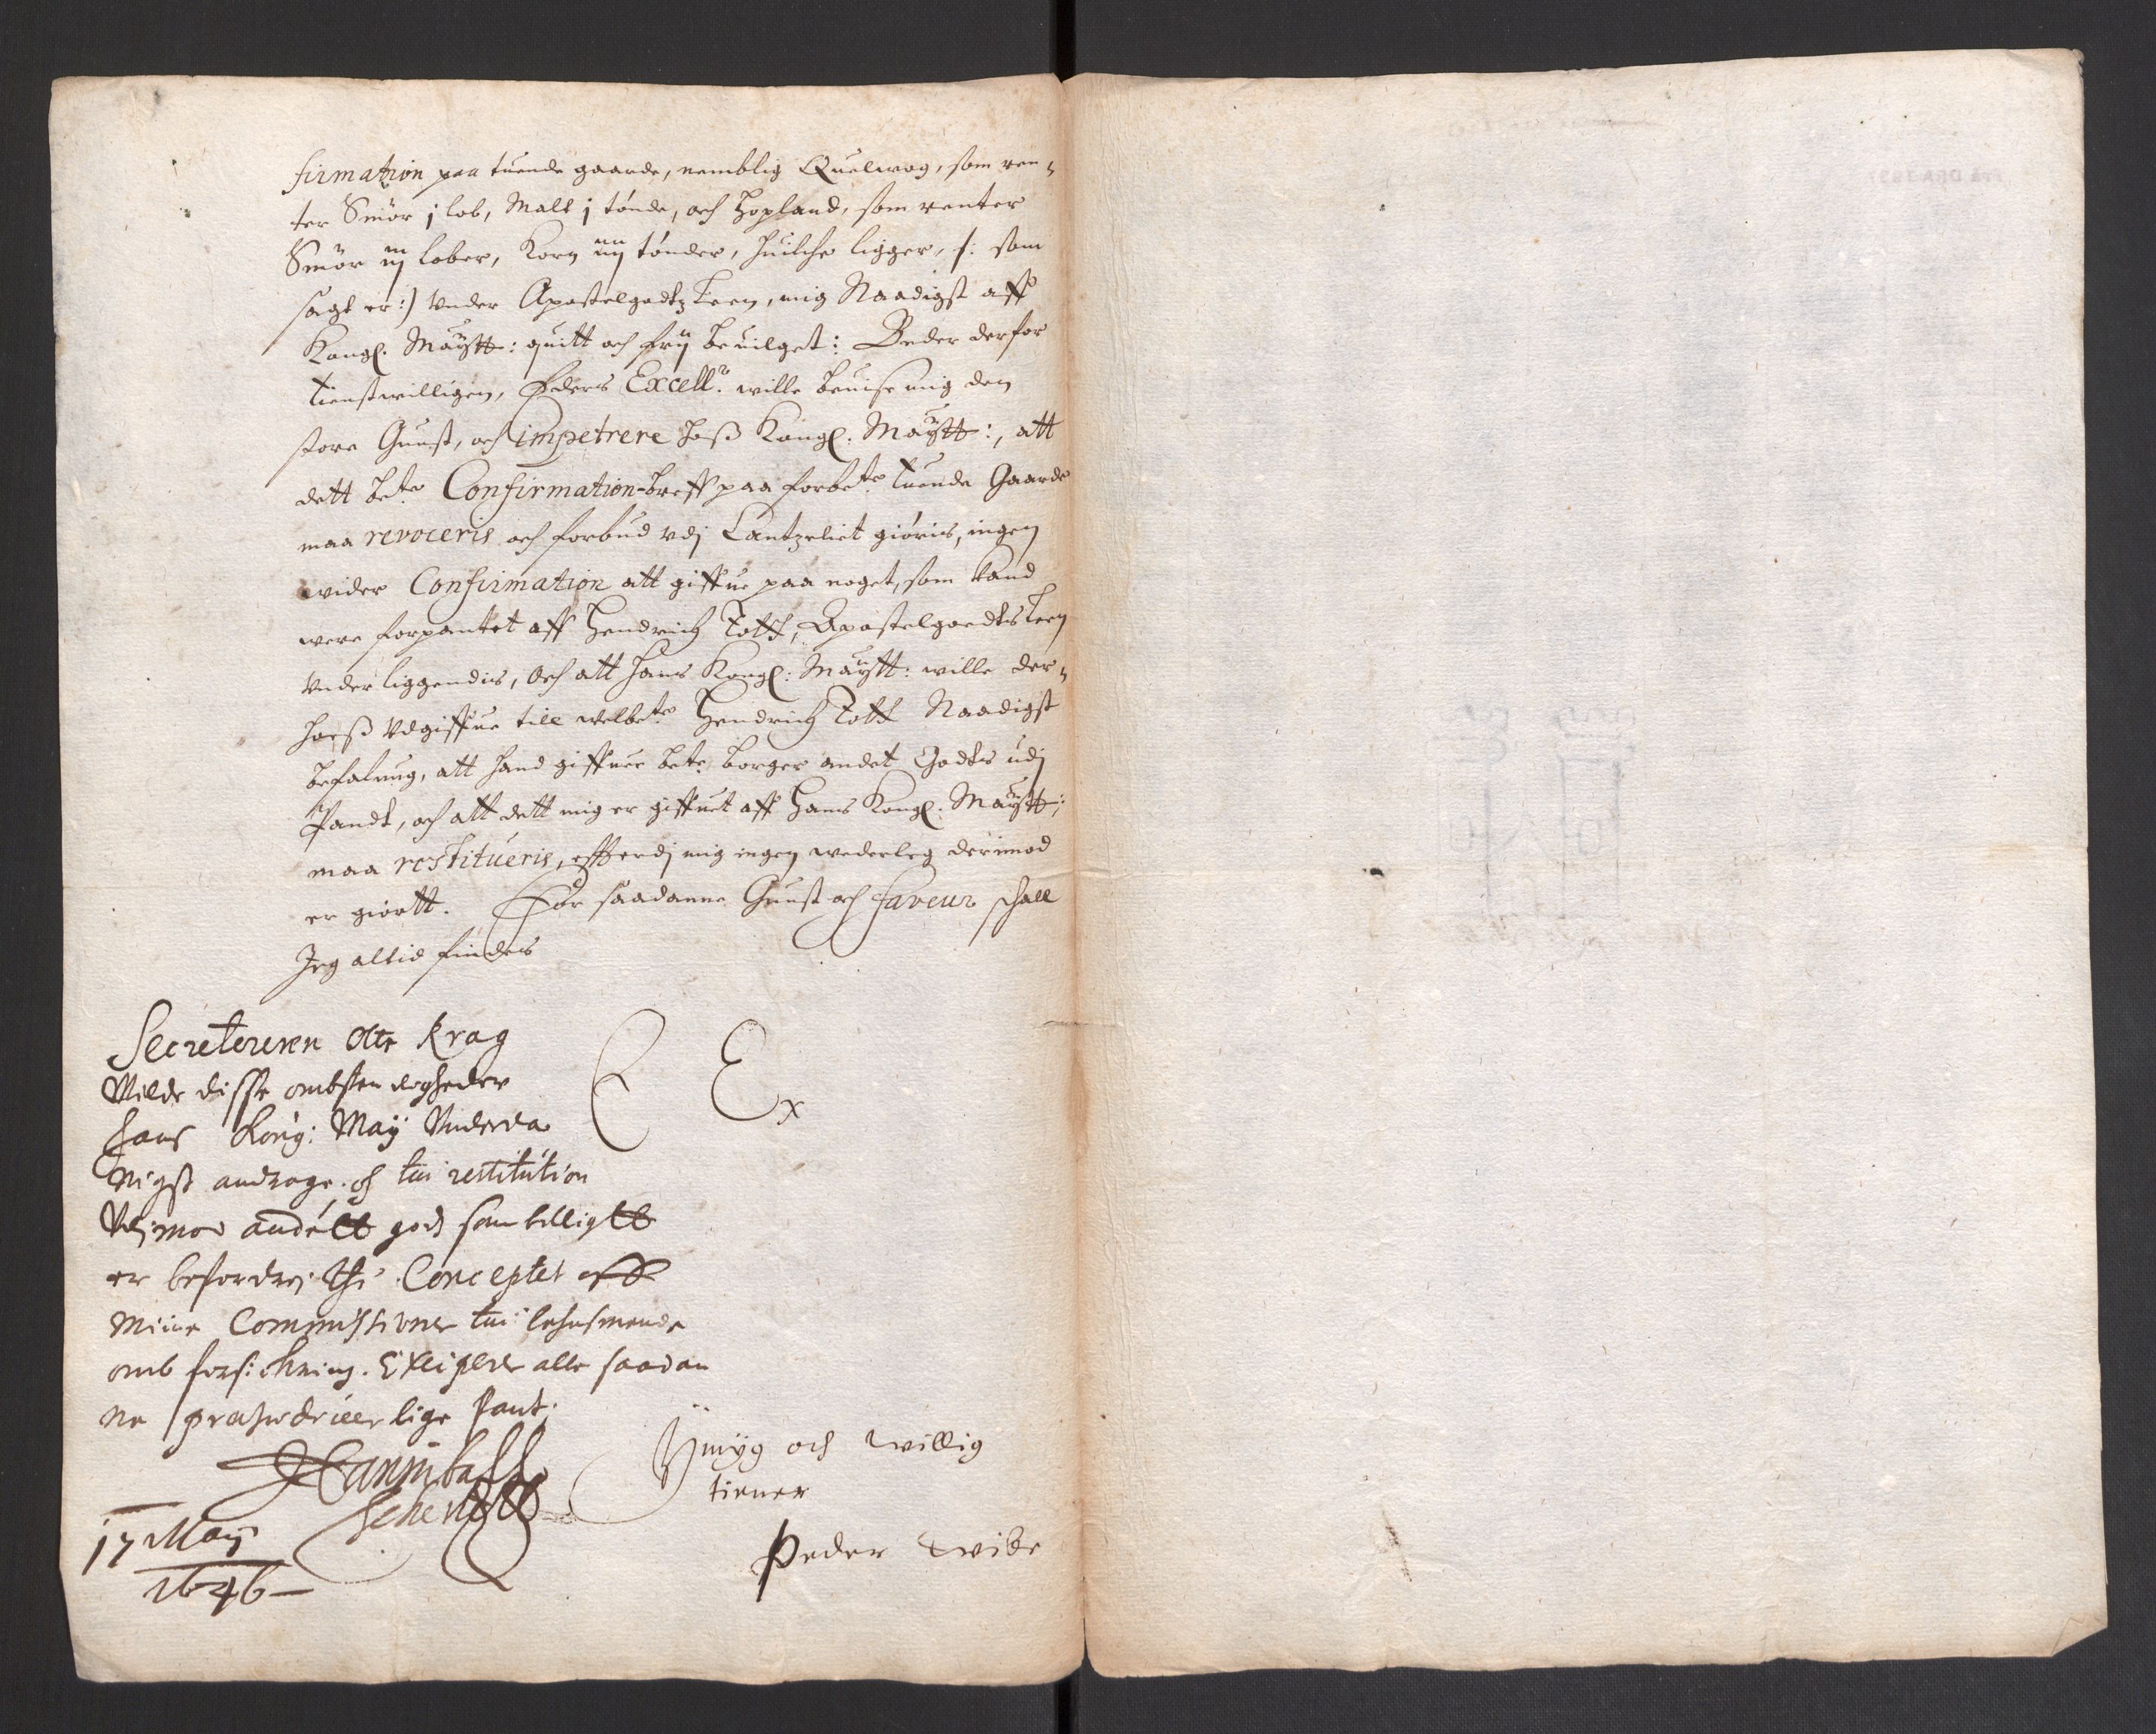 firmation paa tuende gaarde, nemblig Quelwog, som ren-
ter Smör j lob, Malt j tønde, och Hopland, som renter
Smör iij lober, Korn iiij tønder, huilche ligger, /: som
sagt er :/ Vnder Apostelgodtz Leen, mig Naadigst aff
Kongl. Maÿstt: quitt och frÿ beuilget: Beder derfor
tienstwilligen, Eders Excell: wille beuise mig den
store Gunst, och impetrere hoß Kongl. Maÿstt:, att
dett bete Confirmation-breff paa forbete tuende Gaarde
maa revoceris och forbud vdj Cantzeliet giøris, ingen
wider Confirmation att giffue paa noget, som kand
were forpantet aff Hendrich Tott, Apostelgoedts Leen
vnderliggendis, Och att Hans Kongl: Maÿstt: wille der-
hoeß Vdgiffue till welbete Hendrich Tott Naadigst
befalning, att hand giffuer bete borger andet Godts udj
Pandt, och att dett mig er giffuet aff Hans Kongl. Maÿstt:
maa restitueris, effterdj mig ingen wederleg derimod
er giortt. For saadanne Gunst och faveur schall
Jeg altid findes
E Ex
Secreteren Otte Krag
Wilde disse ombstendigheder
Hans Kong: Maÿ Vnderda
nigst andrage. och till restitution
Vdj mod andett gods som billigtt
er befordre; Thi Conceptet aff
Mine Commissioner till lehnsmende
omb forsichring. Exciperer alle saadan
ne lige pant.
Hannibal
Sehestett
17 Maÿ
1646
Ydmÿg och willig
tiener
Peder Wibe